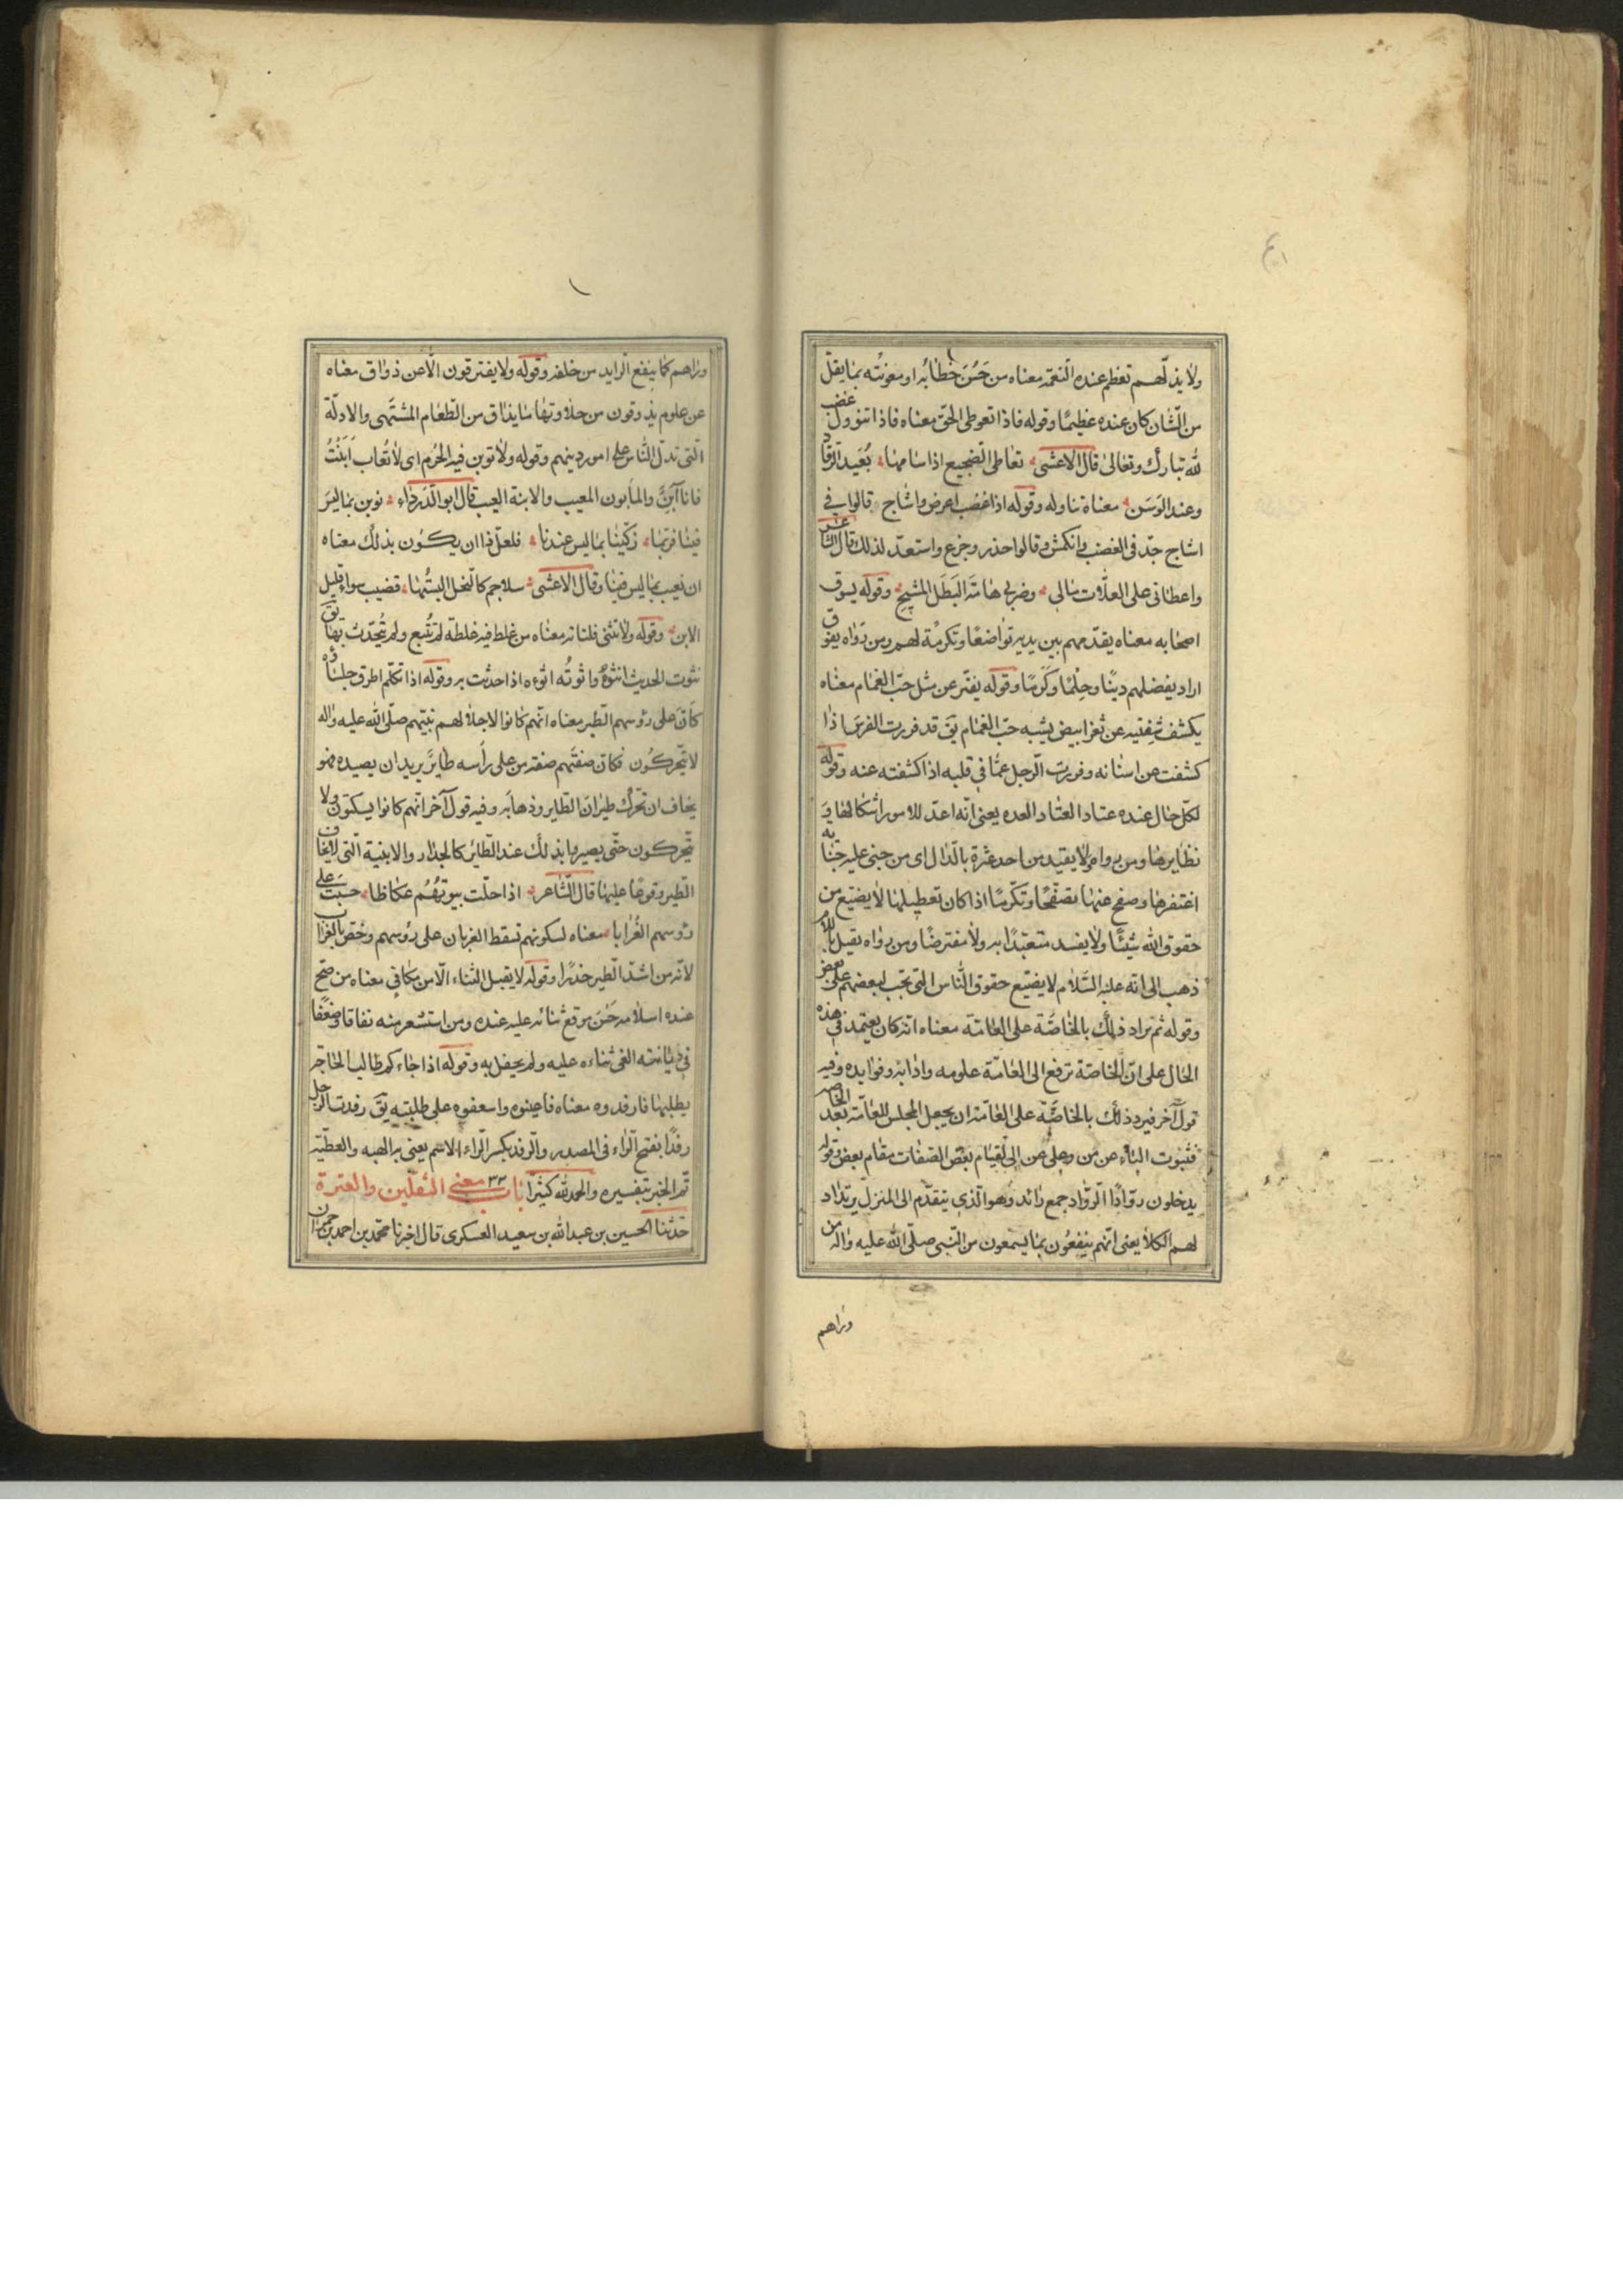 ولا يذلّهم تعظم عنده النعمة معناه من حسن خطابه او معونته بما يقلّ
من الشان كان عنده عظيمًا وقوله فاذا تعوطى الحقّ معناه فاذا تنوول غضب
لله تبارك وتعالى قال الاعشى تعاطى الضجيع اذا سامها بُعَيد الرقاد
وعند الوَسَن معناه تناوله وقوله اذا غضب اعرض واشاح قالوا في
اشاح جدّ فى الغضب وانكمش وقالوا حذر وجزع واستعدّ لذلك قال الشاعر
واعطائى على العلّات مالى وضربى هامة البَطَل المشيح وقوله يسوق
اصحابه معناه يقدّمهم بين يديه تواضعًا وتكرمة لهم ومن رواه يفوق
اراد يفضلهم دينًا وحِلْمًا وكَرَمًا وقوله يفترّ عن مثل حبّ الغمام معناه
يكشف شفتيه عن ثغر ابيض يشبه حبّ الغمام يق قد فررت الفرس اذا
كشفت عن اسنانه وفررت الرجل عمّا في قلبه اذا كشفته عنه وقوله
لكلّ حال عنده عتاد العتاد العده يعنى انّه اعدّ للامور اشكالها و
نظايرها ومن رواه ولا يقيد من احد عثرة بالدّال اى من جنى عليه جناية
اغتفرها وصفح عنها تصفّحًا وتكرّمًا اذا كان تعطيلها لا يضيّع من
حقوق الله شيئًا ولا يفسد متعبّدًا به ولا مفترضًا ومن رواه يقيل باللام
ذهب الى انّه عليه السّلام لا يضيّع حقوق النّاس التى تجب لبعضهم على بعض
وقوله ثم يرد ذلك بالخاصّة على العامّة معناه انه كان يعتمد فى هذه
الحال على انّ الخاصّة ترفع الى العامّة علومه وادابه وفوايده وفيه
قول آخر فيرد ذلك بالخاصّة على العامّة ان يجعل المجلس للعامّة بعد الخاصه
فتنوب الباء عن من وعلى عن الى لقيام بعض الصفات مقام بعض وقوله
يدخلون روّادًا الروّاد جمع رائد وهو الّذي يتقدّم الى المنزل يرتاد
لهم الكلأ يعنى انّهم ينفعون بما يسمعون من النّبى صلّى الله عليه واله من
وراهم
وراهم كما ينفع الرايد من خلفه وقوله ولا يفترقون الّا عن ذواق معناه
عن علوم يذوقون من حلاوتها ما يذاق من الطّعام المشتهى والادلّة
الّتى تدلّ النّاس على امور دينهم وقوله ولا توبن فيه الحُرم اى لا تُعاب اَبَنْتُ
فانا آبنٌ والمأبون المعيب والابنة العيب قال ابو الدّرداء نوبن بما ليس
فينا فربّما زكّينا بما ليس عندنا فلعلّ ذا ان يكون بذلك معناه
ان نعيب بما ليس فينا وقال الاعشى سلاجم كالنخل البستُها قضيب سراء قليل
الابن وقوله ولا تنثى فلتاته معناه من غلط فيه غلطة لم تُتبع ولم يُتحدّث بها يق
نثوت الحديث انثوه نثوًا واثوتُه اثوءه اذا حدثت به وقوله اذا تكلّم اطرق جلساؤه
كانّ على رؤسهم الطّير معناه انّهم كانوا لاجلالهم نبيّهم صلّى الله عليه واله
لا يتحركون فكان صفتهم صفة من على رأسه طايرٌ يريد ان يصيده فهو
يخاف ان تحرّك طيران الطاير وذهابه وفيه قول آخر انّهم كانوا يسكتون ولا
يتحركون حتّى يصيروا بذلك عند الطّائر كالجدار والابنية الّتى لا يخاف
الطّير وقوعًا عليها قال الشّاعر اذا حلّت بيوتُهُم عكاظا حسبت على
رؤسهم الغُرابا معناه لسكونهم تسقط الغربان على رؤسهم وخصّ بالغراب
لانّه من اشدّ الطّير حذرًا وقوله لا يقبل الثناء الّا من مكافى معناه من صحّ
عنده اسلامه حَسُن موقع ثنائه عليه عنده ومن استشعر منه نفاقا وضعفًا
فى ديانته الغى ثناءه عليه ولم يحفل به وقوله اذا جاءكم طالب الحاجة
يطلبها فارفدوه معناه فاعينوه واسعفوه على طلبته يق رفدت الرجل
رفدًا بفتح الرّاء فى المصدر والرفد بكسر الرّاء الاسم يعنى به الهبه والعطيّة
تمّ الخبر بتفسيره والحمد لله كثيرًا باب معنى الثقلين والعترة
حدثنا الحسين بن عبدالله بن سعيد العسكرى قال اخبرنا محمّد بن احمد بن حمدان